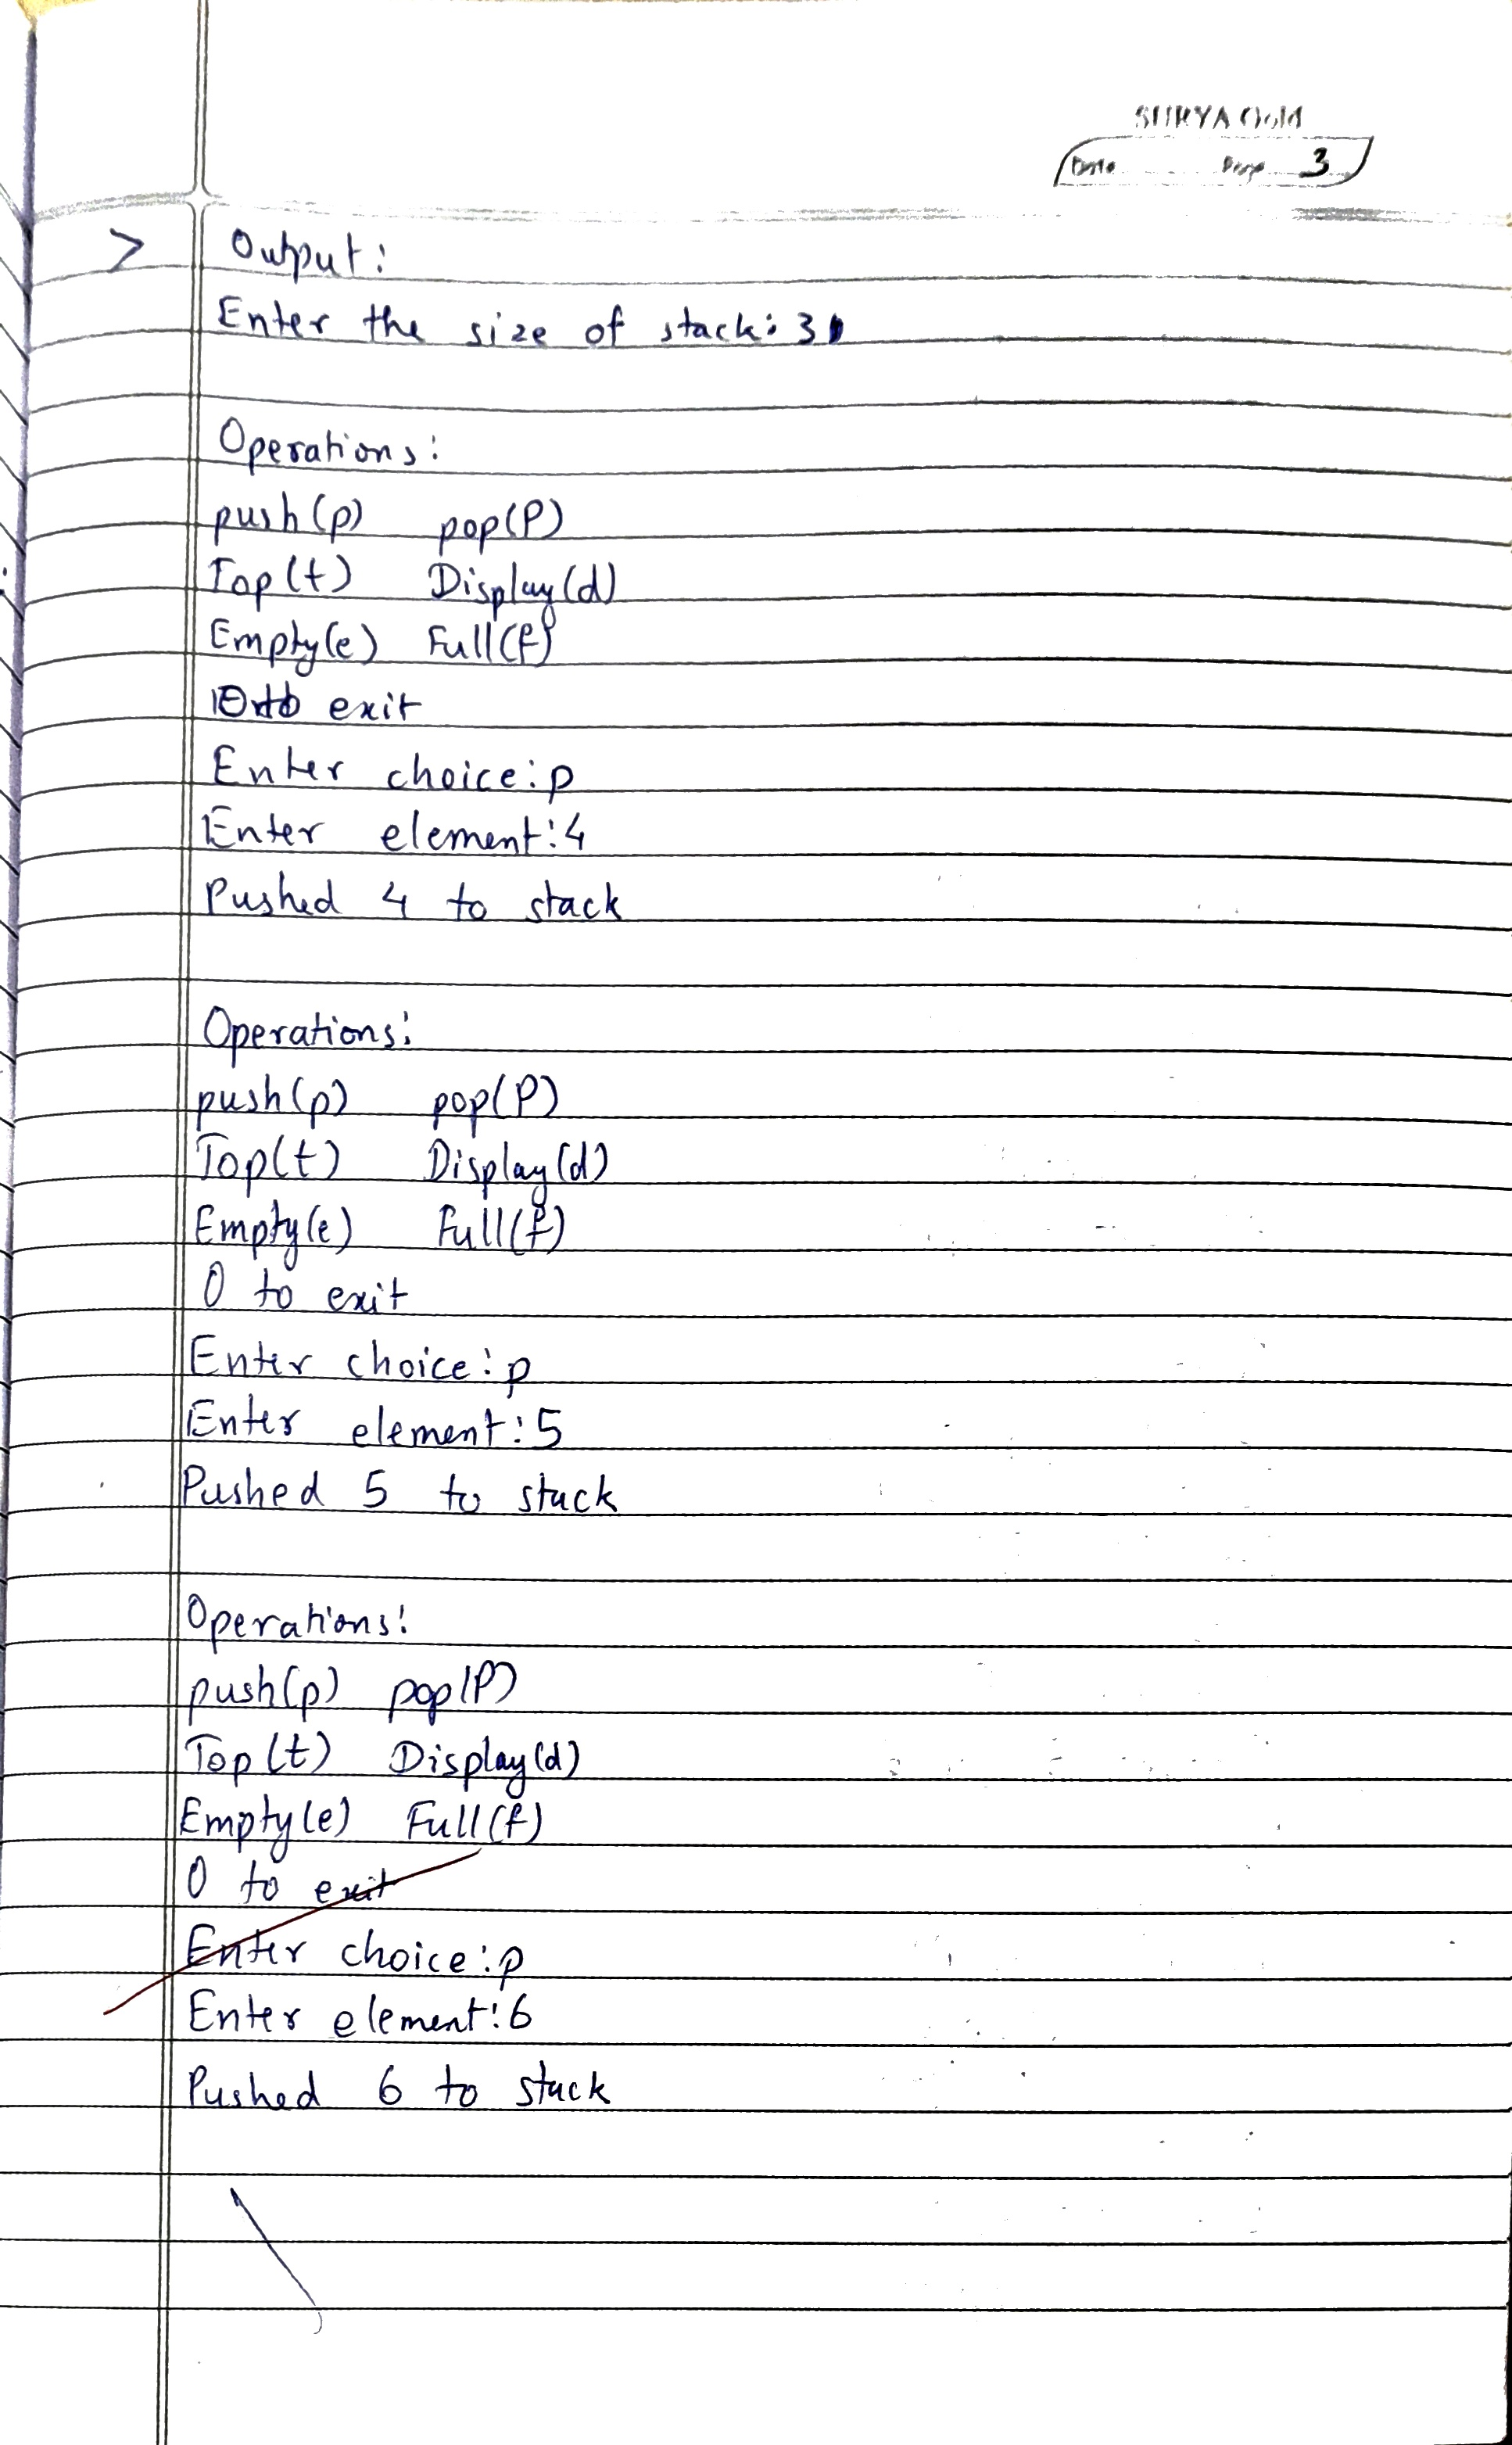 SURYA Gold
Date Page 3
> Output:
Enter the size of stack: 3
Operations:
push(p) pop(P)
Top(t) Display(d)
Empty(e) Full(f)
0 to exit
Enter choice:p
Enter element:4
Pushed 4 to stack
Operations:
push(p) pop(P)
Top(t) Display(d)
Empty(e) Full(f)
0 to exit
Enter choice:p
Enter element:5
Pushed 5 to stack
Operations:
push(p) pop(P)
Top(t) Display(d)
Empty(e) Full(f)
0 to exit
Enter choice:p
Enter element:6
Pushed 6 to stack